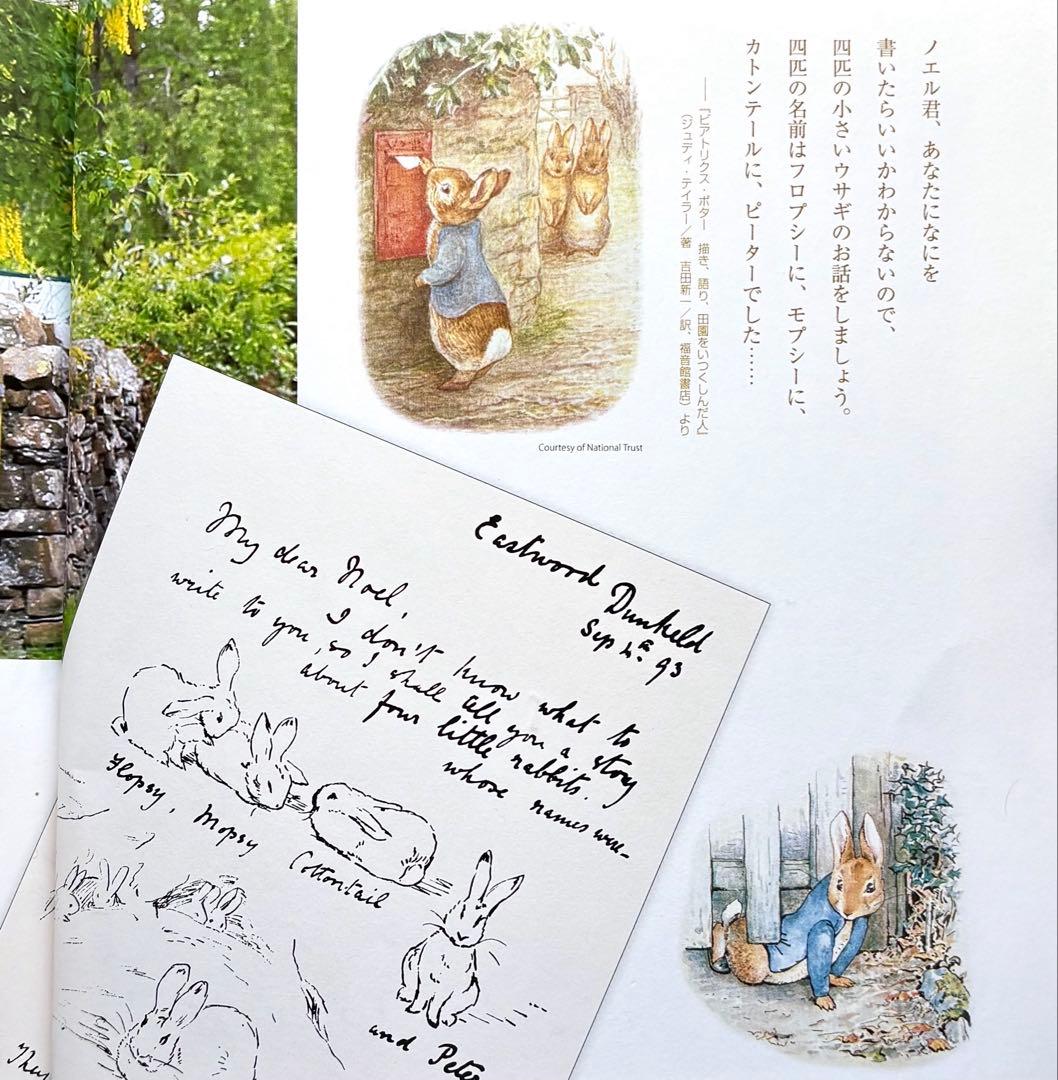 ノエル君、あなたになにを
書いたらいいかわからないので、
四匹の小さいウサギのお話をしましょう。
四匹の名前はフロプシーに、モプシーに、
カトンテールに、ピーターでした……
――『ビアトリクス・ポター 描き、語り、田園をいつくしんだ人』
(ジュディ・テイラー/著 吉田新一/訳、福音館書店)より
Courtesy of National Trust
Eastwood Dunkeld
Sep 4th 93
My dear Noel,
I don't know what to
write to you, so I shall tell you a story
about four little rabbits.
whose names were–
Flopsy, Mopsy
Cottontail
and Peter